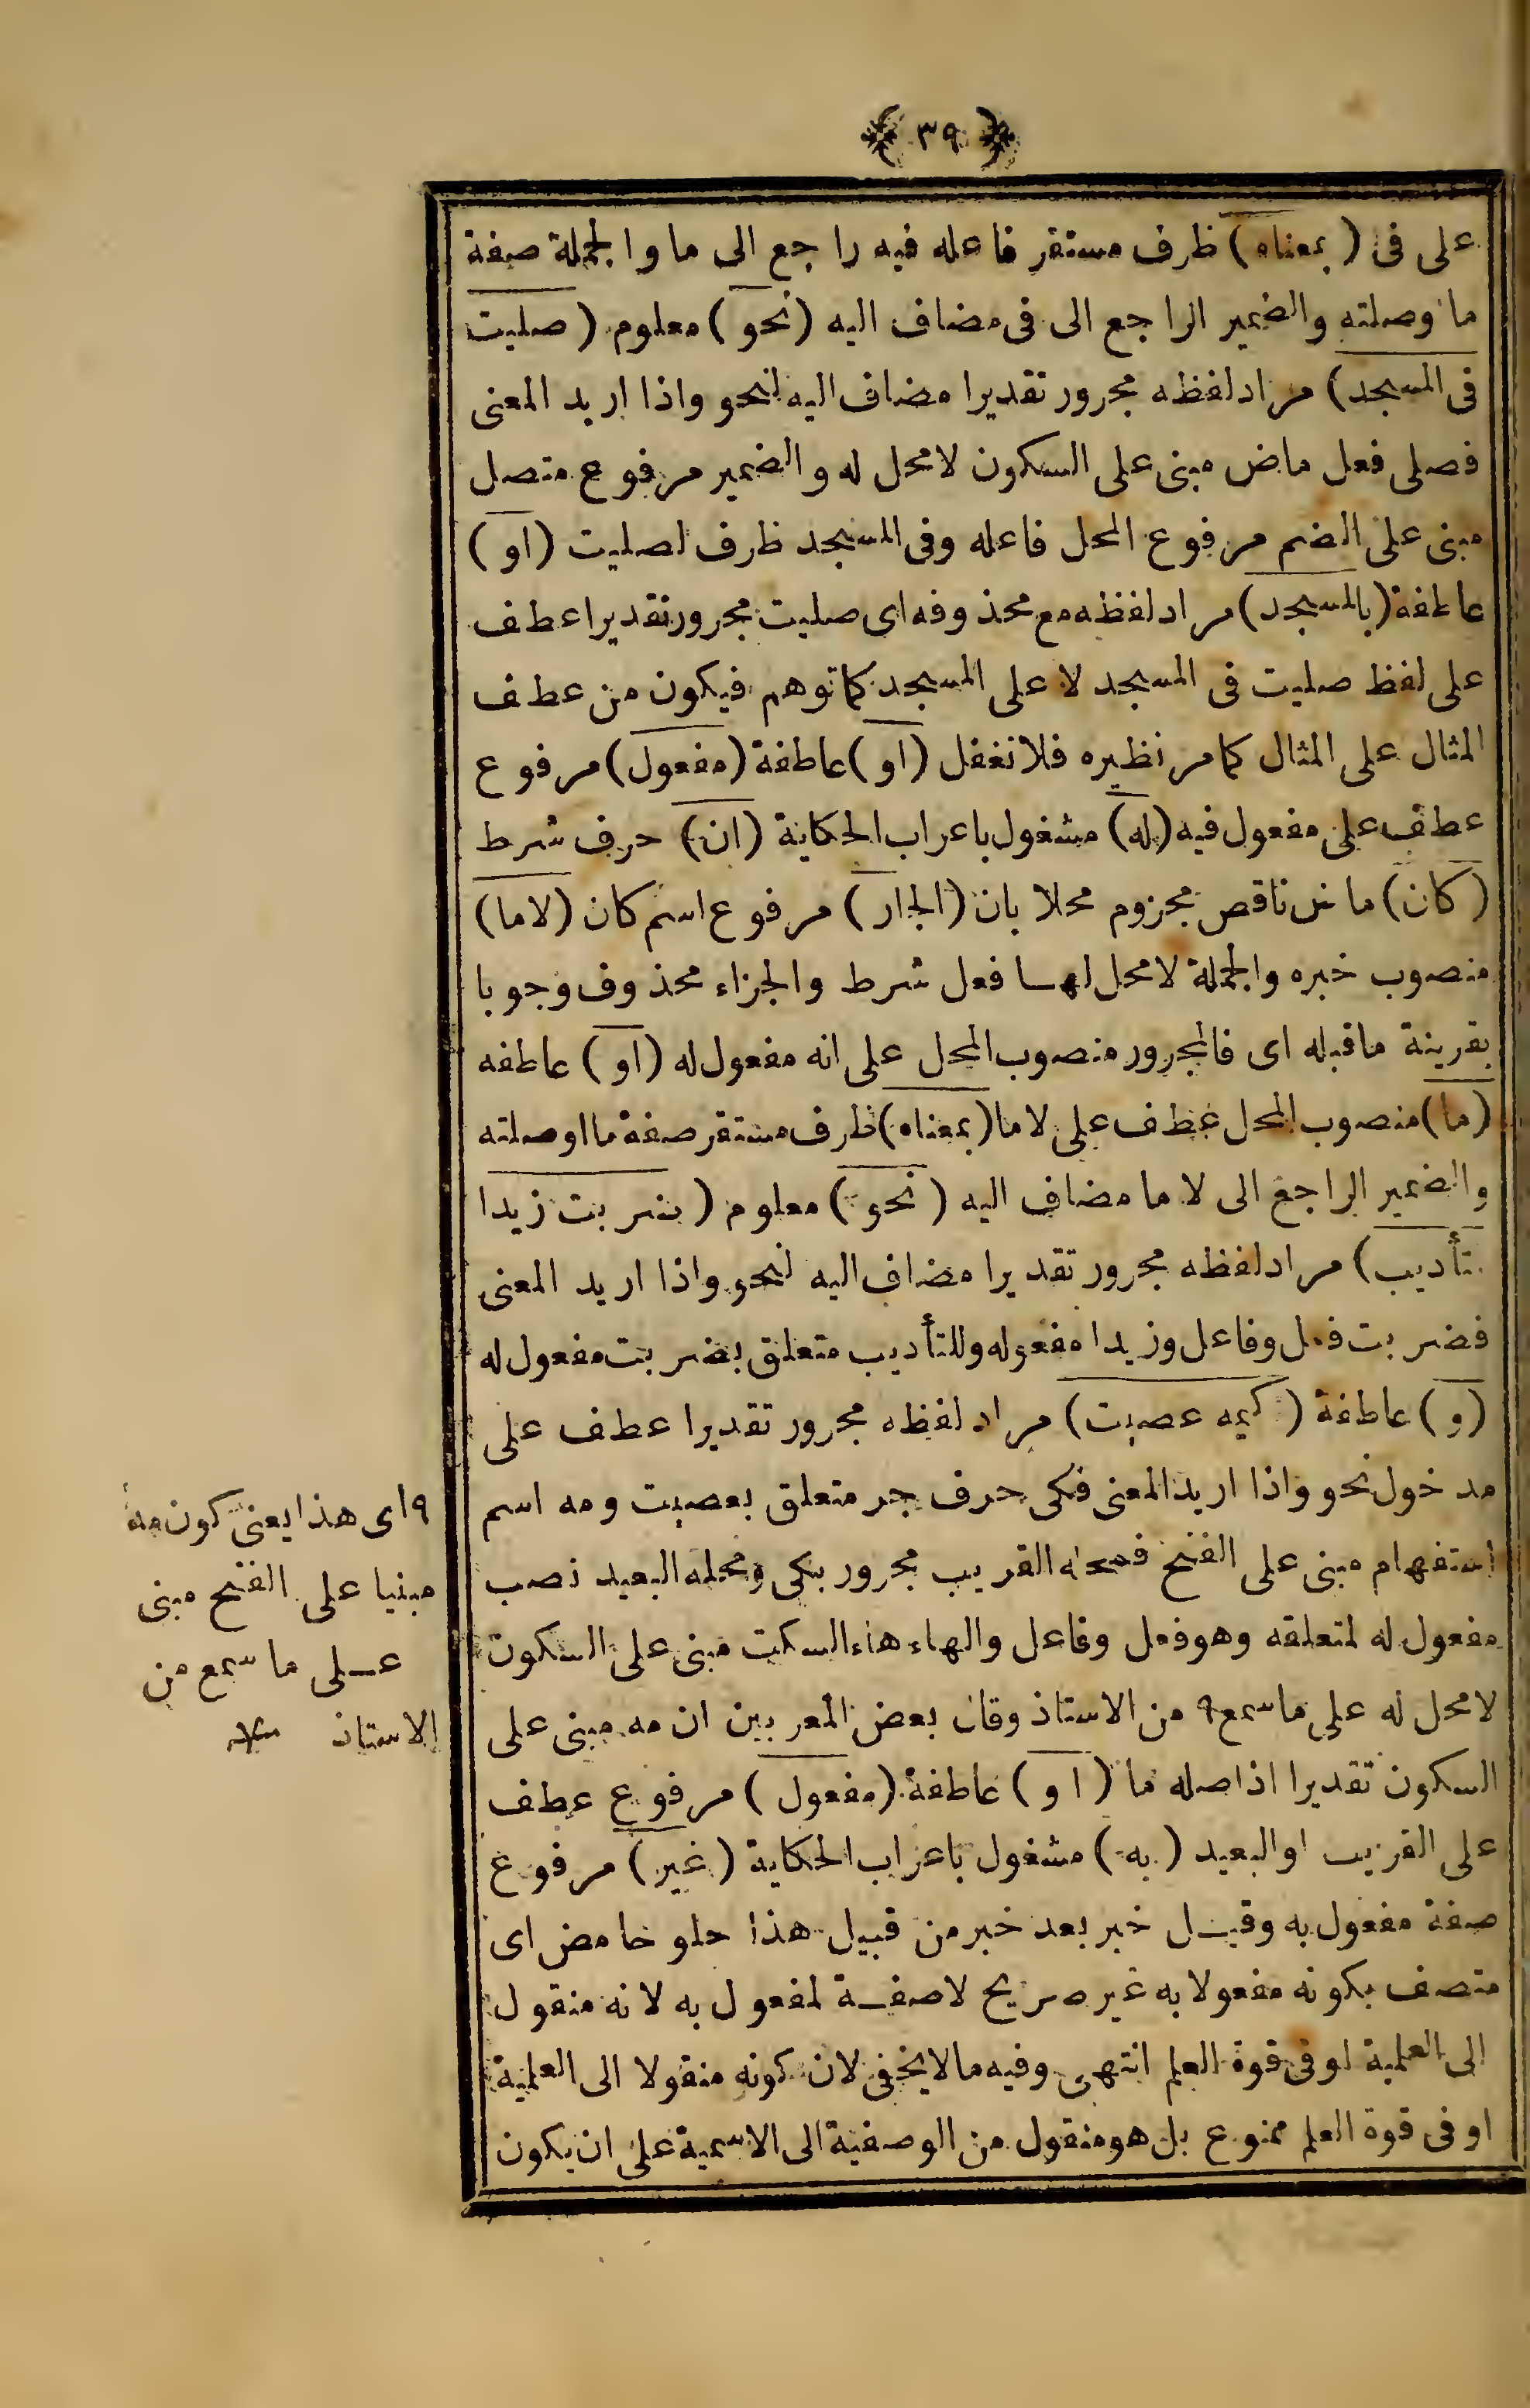 ﴿ ٣٩ ﴾
على فى ( بمعناه ) ظرف مستقر فاعله فيه راجع الى ما والجملة صفة
ما وصلته والضمير الراجع الى فى مضاف اليه ( نحو ) معلوم ( صليت
فى المسجد ) مراد لفظه مجرور تقديرا مضاف اليه لنحو واذا اريد المعنى
فصلى فعل ماض مبنى على السكون لامحل له والضمير مرفوع متصل
مبنى على الضم مرفوع المحل فاعله وفى المسجد ظرف لصليت ( او )
عاطفة ( بالمسجد ) مراد لفظه مع محذوفه اى صليت مجرور تقديرا عطف
على لفظ صليت فى المسجد لا على المسجد كما توهم فيكون من عطف
المثال على المثال كما مر نظيره فلا تغفل ( او ) عاطفة ( مفعول ) مرفوع
عطف على مفعول فيه ( له ) مشغول باعراب الحكاية ( ان ) حرف شرط
( كان ) ماض ناقص مجزوم محلا بان ( الجار ) مرفوع اسم كان ( لاما )
منصوب خبره والجملة لامحل لها فعل شرط والجزاء محذوف وجوبا
بقرينة ماقبله اى فالمجرور منصوب المحل على انه مفعول له ( او ) عاطفه
( ما ) منصوب المحل عطف على لاما ( بمعناه ) ظرف مستقر صفة ما او صلته
والضمير الراجع الى لا ما مضاف اليه ( نحو ) معلوم ( ضربت زيدا
تأديب ) مراد لفظه مجرور تقديرا مضاف اليه لنحو واذا اريد المعنى
فضربت فعل وفاعل وزيدا مفعوله وللتأديب متعلق بضربت مفعول له
( و ) عاطفة ( كيمه عصيت ) مراد لفظه مجرور تقديرا عطف على
مدخول نحو واذا اريد المعنى فكى حرف جر متعلق بعصيت ومه اسم
استفهام مبنى على الفتح فمحله القريب مجرور بكى ومحله البعيد نصب
مفعول له لمتعلقه وهو فعل وفاعل والهاء هاء السكت مبنى على السكون
لامحل له على ماسمع ٩ من الاستاذ وقال بعض المعربين ان مه مبنى على
السكون تقديرا اذ اصله ما ( او ) عاطفة ( مفعول ) مرفوع عطف
على القريب او البعيد ( به ) مشغول باعراب الحكاية ( غير ) مرفوع
صفة مفعول به وقيل خبر بعد خبر من قبيل هذا حلو حامض اى
متصف بكونه مفعولا به غير صريح لاصفة لمفعول به لانه منقول
الى العلمية او فى قوة العلم انتهى وفيه مالايخفى لان كونه منقولا الى العلمية
او فى قوة العلم ممنوع بل هو منقول من الوصفية الى الاسمية على ان يكون
٩ اى هذا يعنى كون مه
مبنيا على الفتح مبنى
على ما سمع من
الاستاذ